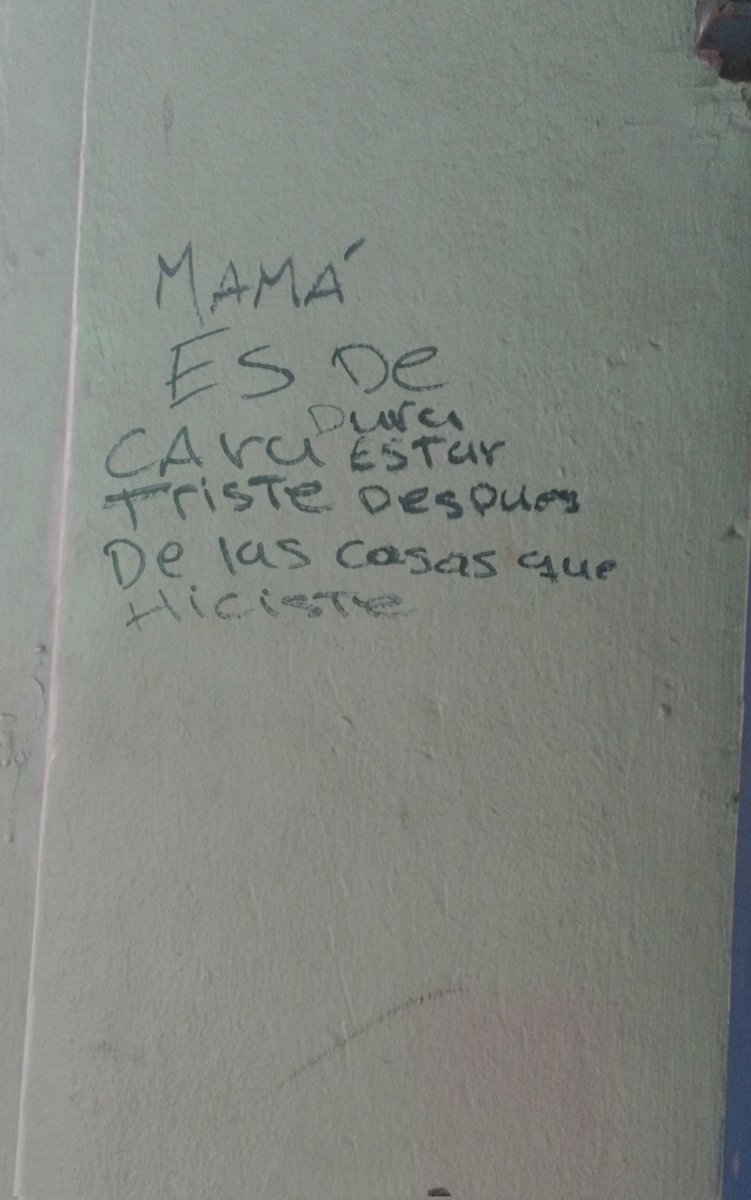 MAMÁ
ES DE
CARA DURA ESTAR
TRISTE DESPUES
DE las cosas que
HICISTE